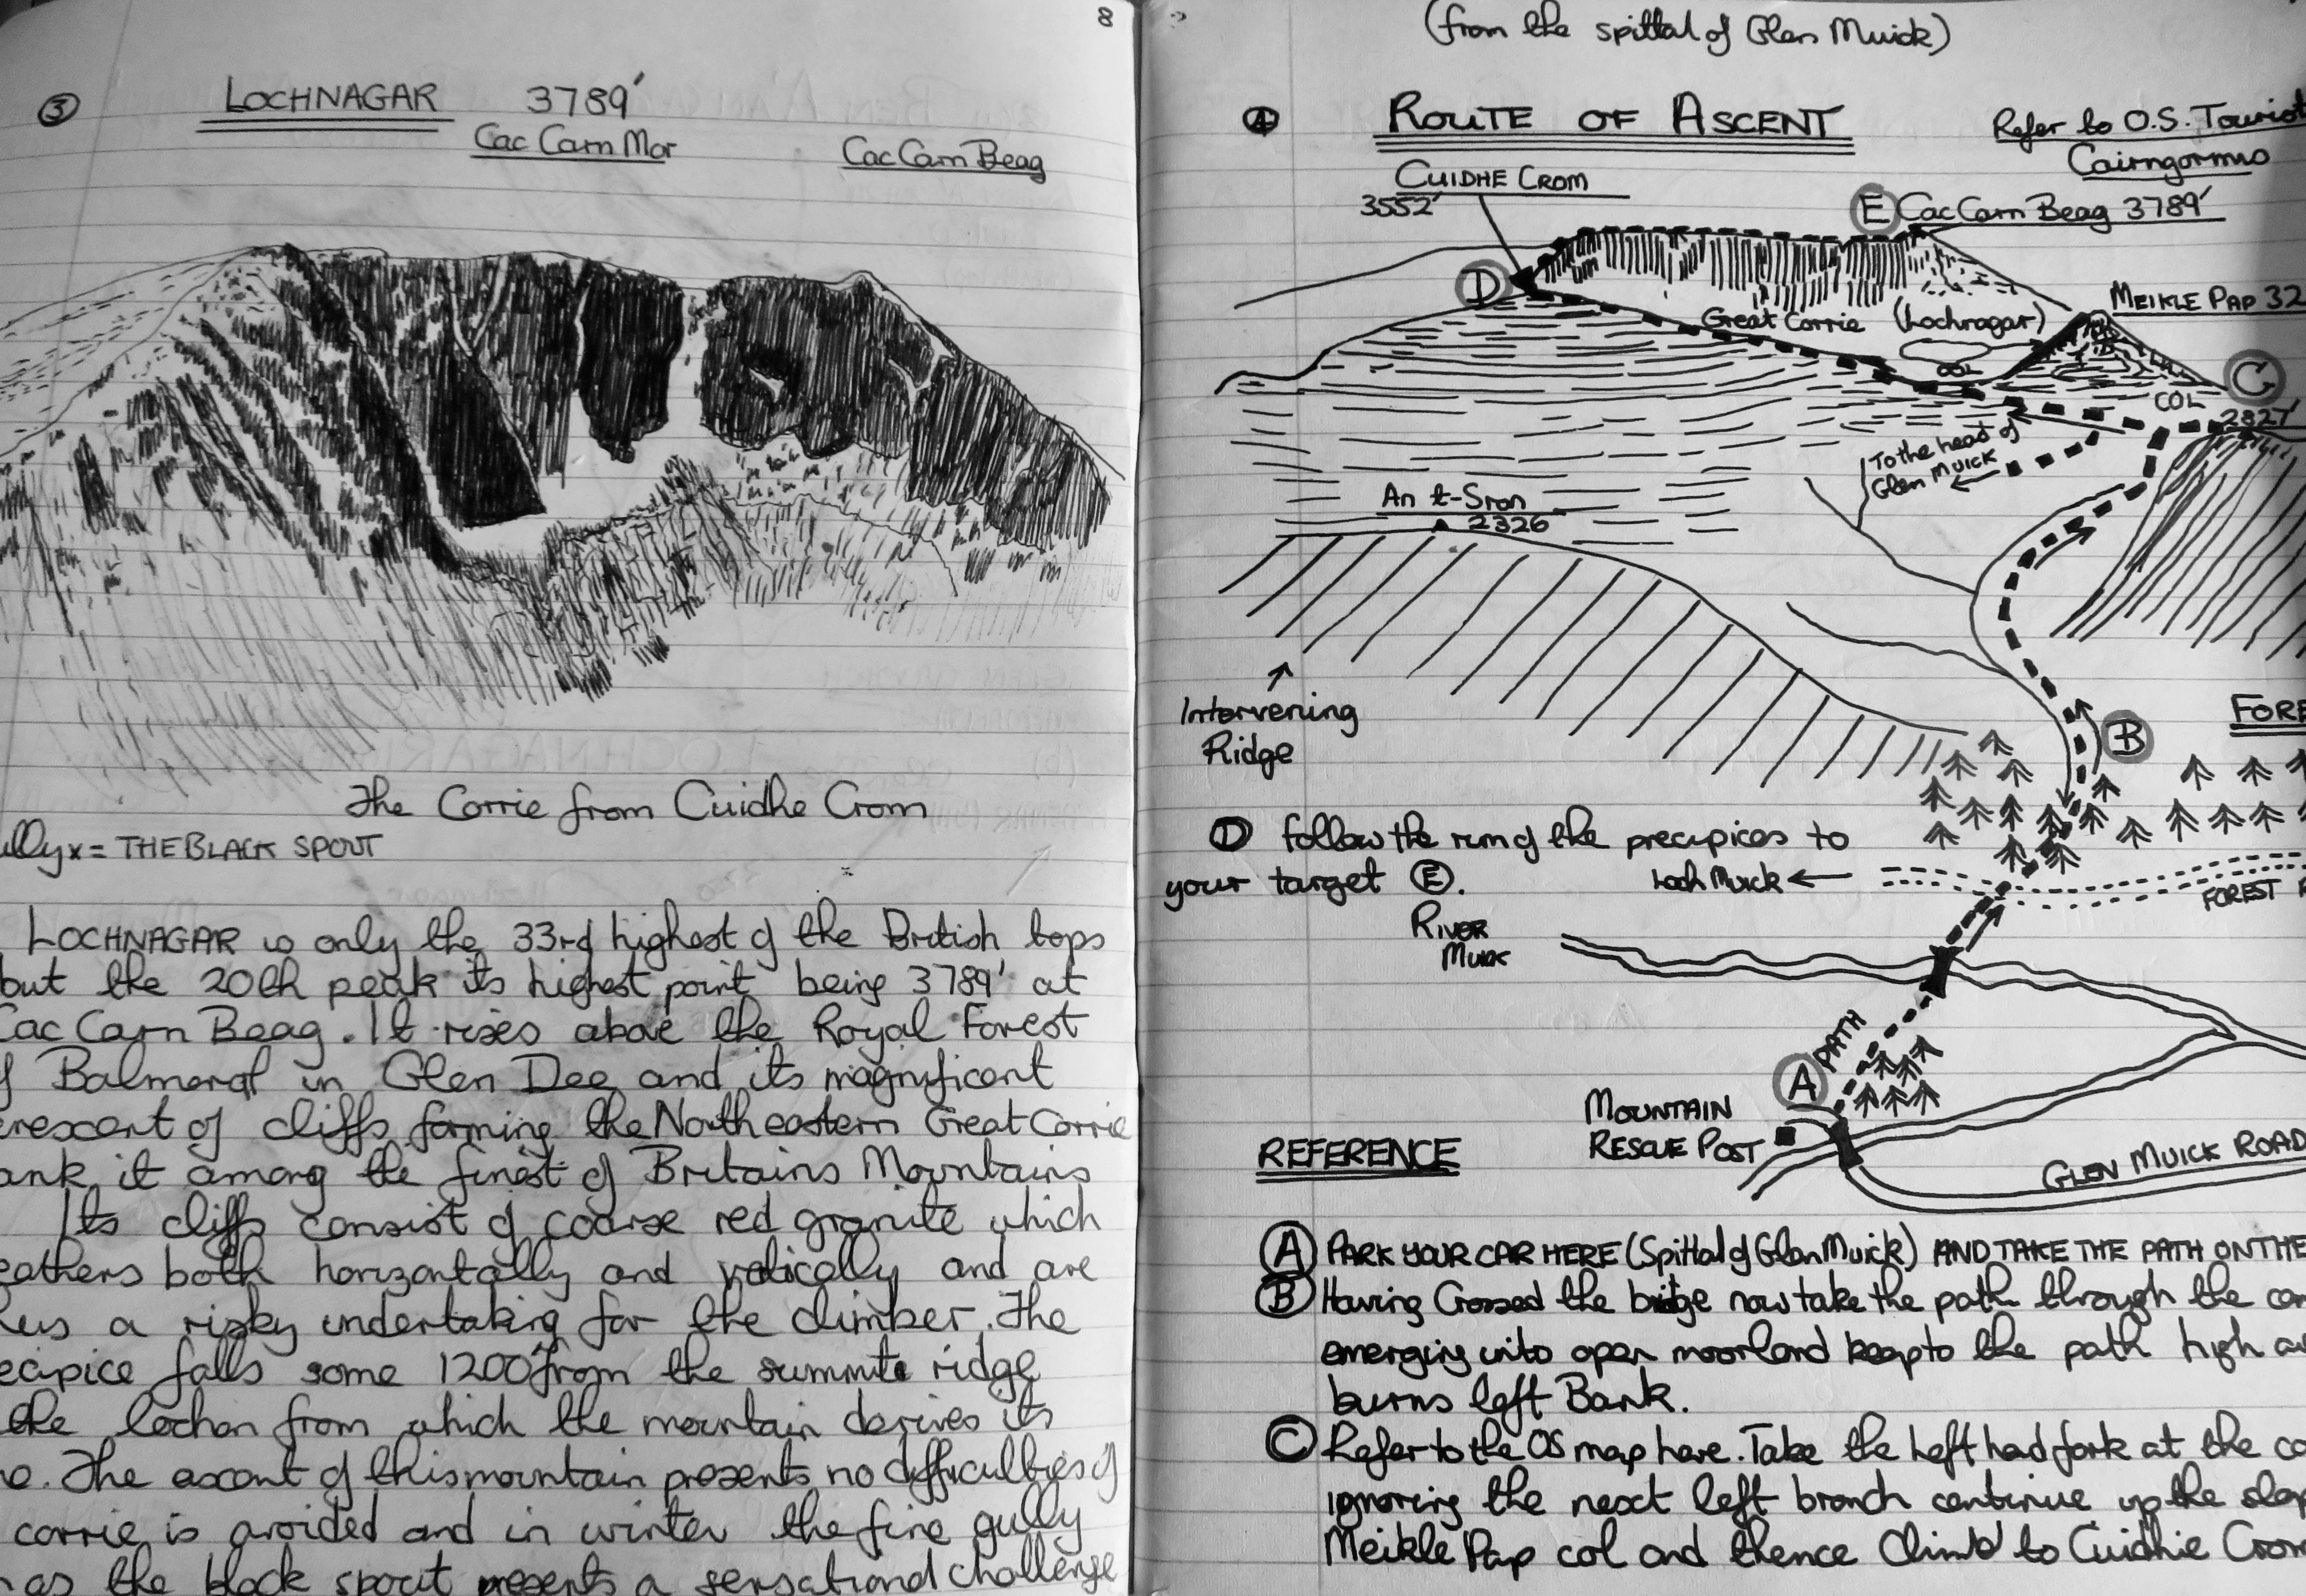 8
③ LOCHNAGAR 3789'
Cac Carn Mor Cac Carn Beag
The Corrie from Cuidhe Crom
ully x = THE BLACK SPOUT
LOCHNAGAR is only the 33rd highest of the British tops
but the 20th peak its highest point being 3789' at
Cac Carn Beag. It rises above the Royal Forest
f Balmoral in Glen Dee and its magnificent
rescent of cliffs forming the North eastern Great Corrie
ank it among the finest of Britains Mountains
Its cliffs consist of coarse red granite which
eathers both horizontally and vertically and are
hus a risky undertaking for the climber. The
ecipice falls some 1200' from the summit ridge
the lochan from which the mountain derives its
e. The ascent of this mountain presents no difficulties if
corrie is avoided and in winter the fine gully
as the black spout presents a sensational challenge
(from the spittal of Glen Muick)
④ ROUTE OF ASCENT
Refer to O.S. Tourist
Cairngorms
CUIDHE CROM
3552'
E Cac Carn Beag 3789'
D
MEIKLE PAP 32
Great Corrie (Lochnagar)
COL
C
COL
2827'
To the head of
Glen Muick
An t-Sron
2326
Intervening
Ridge
B
FORE
D follow the rim of the precipices to
your target E.
Loch Muick
FOREST R
RIVER
MUICK
PATH
A
MOUNTAIN
RESCUE POST
GLEN MUICK ROAD
REFERENCE
A PARK YOUR CAR HERE (Spittal of Glen Muick) AND TAKE THE PATH ON THE
B Having Crossed the bridge now take the path through the con
emerging into open moorland keep to the path high
burns left Bank.
C Refer to the OS map here. Take the left hand fork at the co
ignoring the next left branch continue up the slop
Meikle Pap col and thence climb to Cuidhie Crom